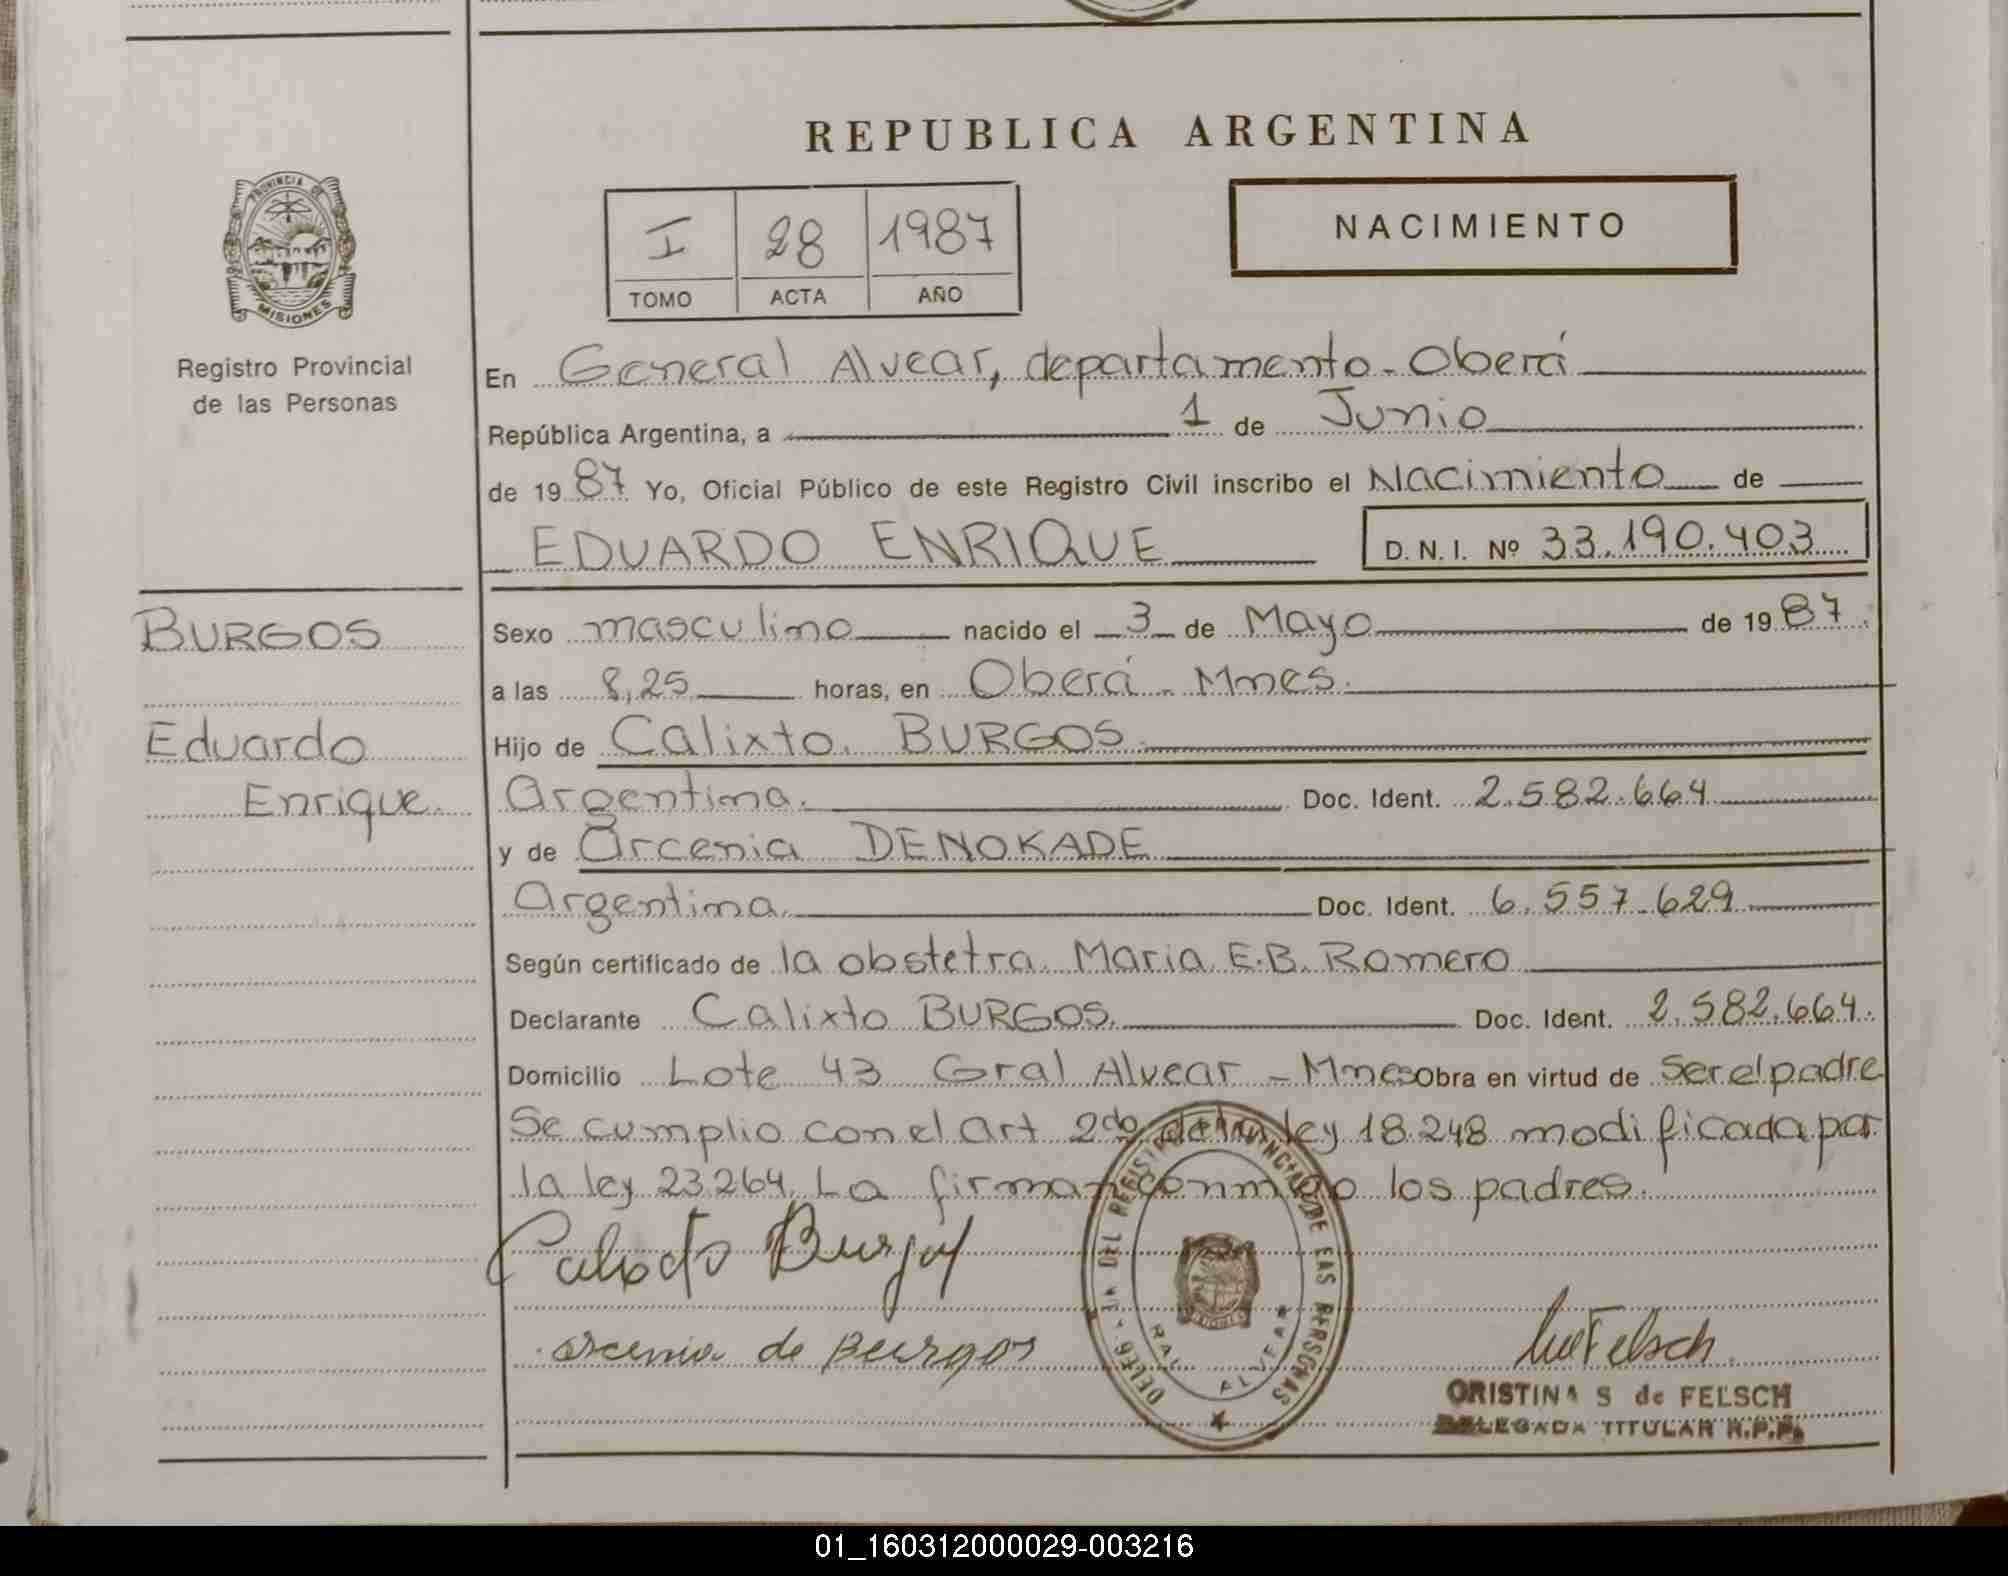 REPUBLICA ARGENTINA
PROVINCIA DE
MISIONES
Registro Provincial
de las Personas
I 28 1987
TOMO ACTA AÑO
NACIMIENTO
En General Alvear, departamento - Oberá
República Argentina, a 1 de Junio
de 1987 Yo, Oficial Público de este Registro Civil inscribo el Nacimiento de
EDUARDO ENRIQUE D. N. I. Nº 33.190.403
BURGOS
Eduardo
Enrique.
Sexo masculino nacido el 3 de Mayo de 1987.
a las 8,25 horas, en Oberá - Mnes.
Hijo de Calixto BURGOS.
Argentina. Doc. Ident. 2.582.664
y de Arcenia DENOKADE
Argentina. Doc. Ident. 6.557.629
Según certificado de la obstetra Maria E.B. Romero
Declarante Calixto BURGOS. Doc. Ident. 2.582.664.
Domicilio Lote 43 Gral Alvear - Mnes Obra en virtud de Ser el padre
Se cumplio con el art 2do de la ley 18.248 modificada por
la ley 23.264. La firman conmigo los padres.
Calixto Burgos
arcenia de Burgos
DEL REGISTRO PROVINCIAL DE LAS PERSONAS
RAL ALVEAR
CRISTINA S de FELSCH
DELEGADA TITULAR R.P.P.
01_160312000029-003216